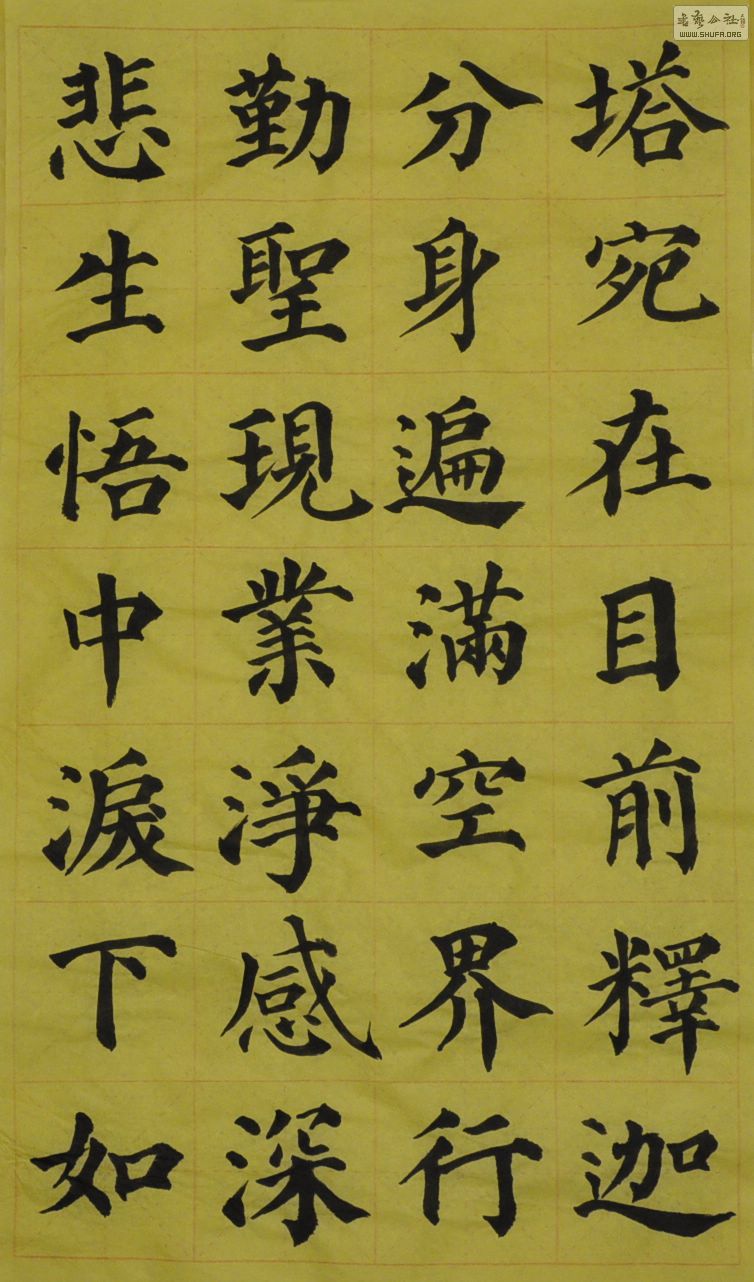 塔宛在目前釋迦
分身遍滿空界行
勤聖現業淨感深
悲生悟中淚下如
書藝公社
WWW.SHUFA.ORG